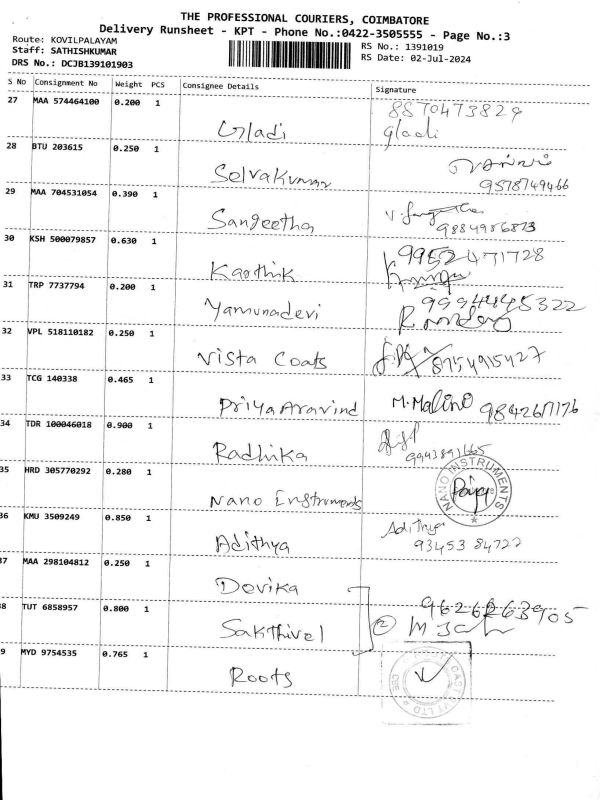 THE PROFESSIONAL COURIERS, COIMBATORE
Delivery Runsheet - KPT - Phone No.:0422-3505555 - Page No.:3
Route: KOVILPALAYAM
Staff: SATHISHKUMAR
DRS No.: DCJB139101903
RS No.: 1391019
RS Date: 02-Jul-2024
S No Consignment No Weight PCS Consignee Details Signature
27 MAA 574464100 0.200 1 Gladi 8870473829
gladi
28 BTU 203615 0.250 1 Selvakumar
9578749466
29 MAA 704531054 0.390 1 Sangeetha
9884986873
30 KSH 500079857 0.630 1 Karthik 9952471728
31 TRP 7737794 0.200 1 Yamunadevi 9994445322
32 VPL 518110182 0.250 1 Vista Coats 8754915427
33 TCG 140338 0.465 1 Priya Aravind M. Malini
34 TDR 100046018 0.900 1 Radhika
35 HRD 305770292 0.280 1 Nano Enstruments NANO INSTRUMENTS
36 KMU 3509249 0.850 1 Adithya Adithya
93453 84722
37 MAA 298104812 0.250 1 Devika
38 TUT 6858957 0.800 1 Sakthivel 2 9626263905
39 MYD 9754535 0.765 1 Roots